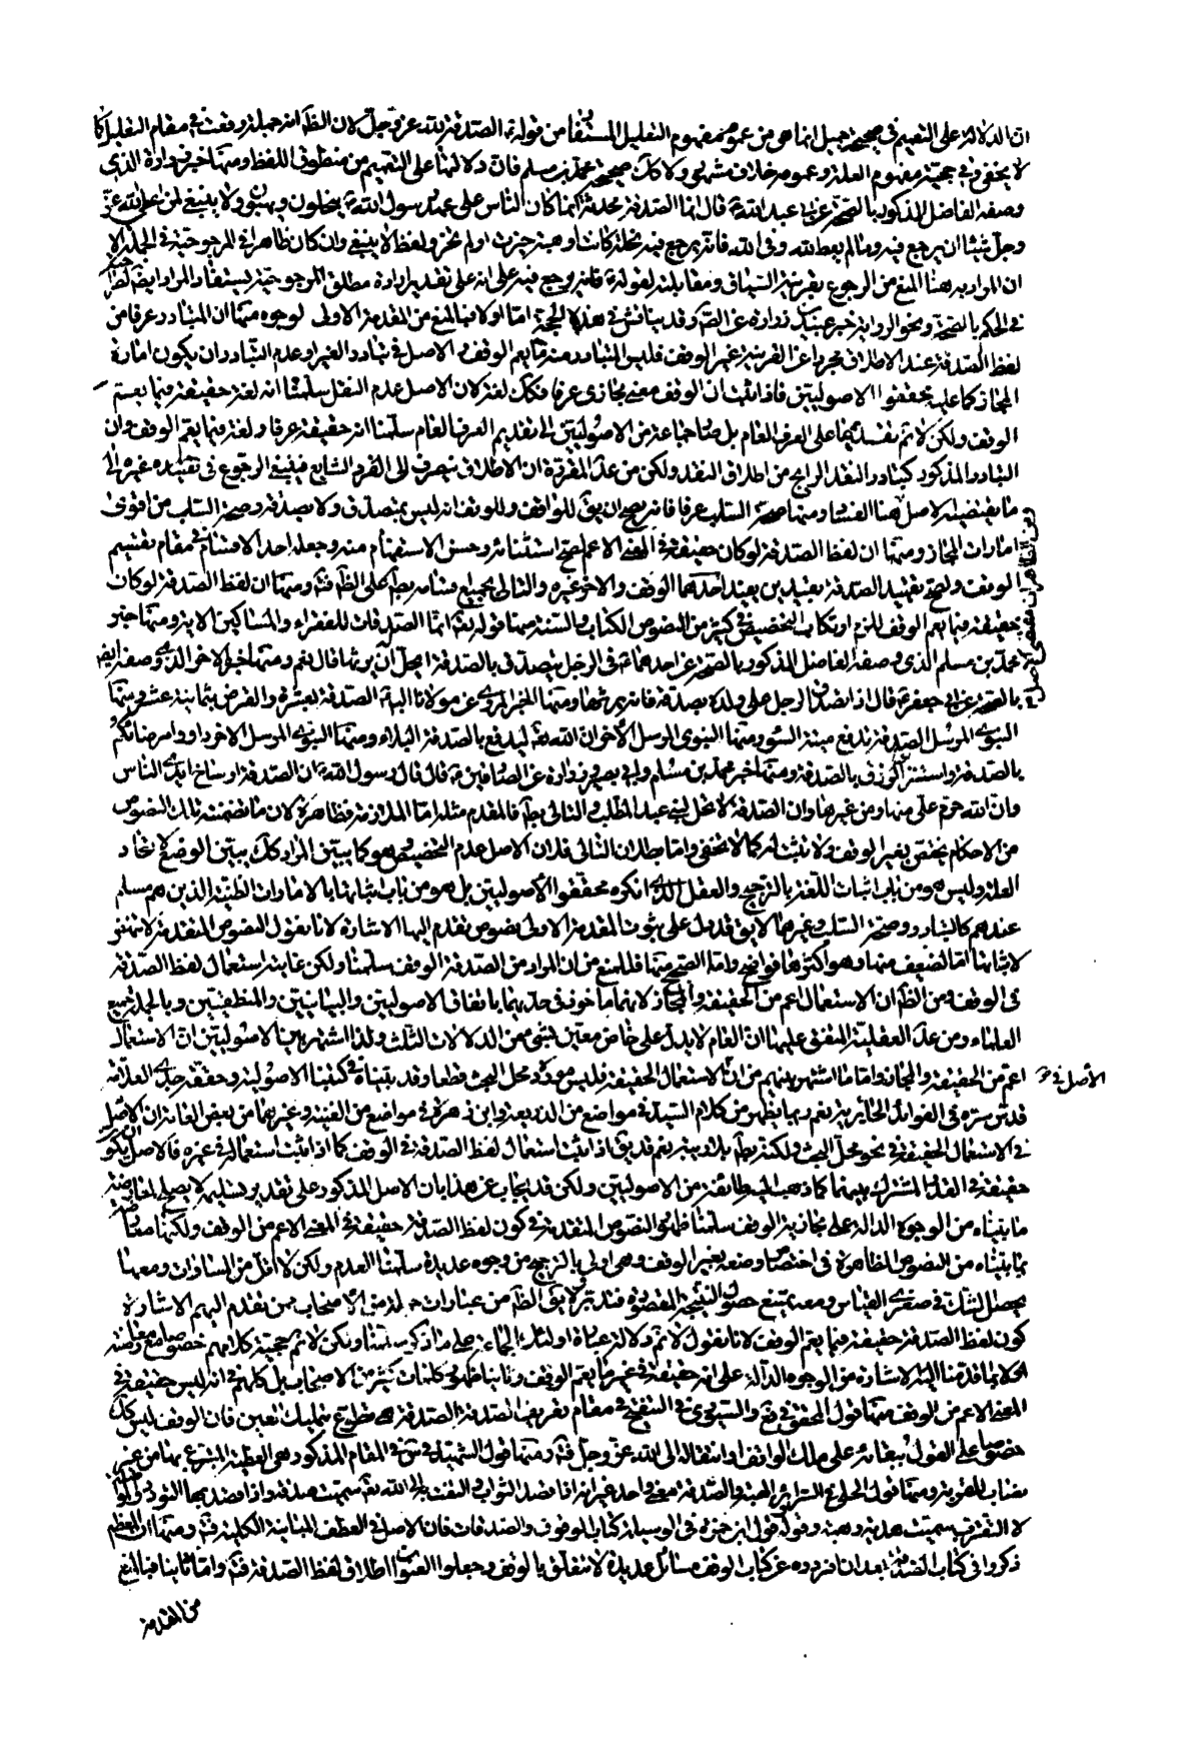 ان الدلالة على التعميم في صحيحة جميل انما هي من عموم مفهوم التعليل المستفاد من قوله انما الصدقة لله عز وجل لان الظ انه جملة وقعت في مقام التعليل كما
لا يخفى وفي حجية مفهوم العلة وعمومه خلاف مشهور ولا كك صحيحة محمد بن مسلم فان دلالتها على التعميم من منطوق اللفظ ومنها خبر زرارة الذي
وصفه الفاضل المذكور بالصحة عن ابي عبد الله ع قال انما الصدقة محدثة انما كان الناس على عهد رسول الله ص ينحلون ويهبون ولا ينبغي لمن اعطى لله عز
وجل شيئا ان يرجع فيه وما لم يعط لله وفي الله فانه يرجع فيه نحلة كانت او هبة حيزت او لم تحز ولفظ لا ينبغي وان كان ظاهرا في المرجوحية في الجملة الا
ان المراد به هنا المنع من الرجوع بقرينة السياق ومقابلته لقوله ع فانه يرجع فيه على انه على تقدير ارادة مطلق المرجوحية يستفاد المراد ايضا
في الحكم بالصحة ونحو الرواية خبر عبيد بن زرارة عن الص وقد يناقش في هذه الحجة اما اولا فبالمنع من المقدمة الاولى لوجوه منها ان المتبادر عرفا من
لفظ الصدقة عند الاطلاق مجردا عن القرينة غير الوقف فليس المتبادر منه ما يعم الوقف و الاصل في تبادر الغير او عدم التبادر ان يكون امارة
المجاز كما عليه محققوا الاصوليين فاذا ثبت ان الوقف معنى مجازي عرفا فكك لغة لان الاصل عدم النقل سلمنا انه لغة حقيقة فيما يعم
الوقف ولكن لا ثم نقدمها على العرف العام بل صار جماعة من الاصوليين الى تقديم العرف العام سلمنا انه حقيقة عرفا ولغة فيما يعم الوقف وان
التبادر المذكور كتبادر النقد الرايج من اطلاق النقد ولكن من عد المقررة ان الاطلاق ينصرف الى الفرد الشايع فينبغي الرجوع في تقييده غيره الى
ما يقتضيه الاصل هنا الفساد ومنها صحة السلب عرفا فانه يصح ان يق للواقف وللوقف انه ليس بمتصدق ولا بصدقة وصحة السلب من اقوى
امارات المجاز ومنها ان لفظ الصدقة لو كان حقيقة في المعنى الاعم لصح استثنائه وحسن الاستفهام منه وجعله احد الاقسام في مقام تقسيم
الوقف ولصح تقييد الصدقة بقيدين يفيد احدهما الوقف والاخر غيره والتالي بجميع اقسامه بط على الظ فت ومنها ان لفظ الصدقة لو كان
حقيقة فيما يعم الوقف للزم ارتكاب التخصيص في كثير من النصوص الكتاب والسنة منها قوله تعالى انما الصدقات للفقراء والمساكين الاية ومنها خبر
محمد بن مسلم الذي وصفه الفاضل المذكور بالصحة عن احدهما ع في الرجل يتصدق بالصدقة ايحل ان يرثها قال نعم ومنها خبره الاخر الذي وصفه ايضا
بالصحة عن ابي جعفر ع قال اذا تصدق الرجل على ولده بصدقة فانه يرثها ومنها الخبر المروي عن مولانا الباقر الصدقة بعشرة والقرض بثمانية عشر ومنها
النبوي المرسل الصدقة تدفع ميتة السوء ومنها النبوي المرسل الاخر ان الله ليدفع بالصدقة البلاء ومنها النبوي المرسل الاخر داووا مرضاكم
بالصدقة واستنزلوا الرزق بالصدقة ومنها خبر محمد بن مسلم وابي بصير وزرارة عن الصادقين ع قال قال رسول الله ص ان الصدقة اوساخ ايدي الناس
وان الله حرم علي منها ومن غيرها وان الصدقة لا تحل لبني عبد المطلب والتالي بط فالمقدم مثله اما الملازمة فظاهرة لان ما تضمنته تلك النصوص
من الاحكام يختص بغير الوقف ولا تثبت له كما لا يخفى واما بطلان التالي فلان الاصل عدم التخصيص وهو كما يبين المراد كك يبين الوضع لاتحاد
العلة وليس هو من باب اثبات اللغة بالترجيح والعقل الذي انكره محققوا الاصوليين بل هو من باب اثباتها بالامارات الظنية الذين هم مسلم
عندهم كالتبادر وصحة السلب وغيرهما لا يق قد دل على ثبوت المقدمة الاولى نصوص تقدم اليها الاشارة لانا نقول النصوص المتقدمة لا تنهض
لاثباتها اما الضعيف منها وهو اكثرها فواضح واما الصحيح منها فللمنع من ان المراد من الصدقة الوقف سلمنا ولكن غايته استعمال لفظ الصدقة
في الوقف ومن الظ ان الاستعمال اعم من الحقيقة والمجاز لانه ماخوذ في حديهما باتفاق الاصوليين والبيانيين والمنطقيين وبالجملة جميع
العلماء ومن عد العقلية المتفق عليها ان العام لا يدل على خاص معين بشئ من الدلالات الثلث ولذا اشتهر بين الاصوليين ان الاستعمال
اعم من الحقيقة والمجاز واما ما اشتهر بينهم من ان الاصل في الاستعمال الحقيقة فليس مورده محل البحث قطعا وقد بيناه في كتبنا الاصولية وحققه جدي العلامة
قدس سره في الفوائد الحائرية نعم ربما يظهر من كلام السيد في مواضع من الذريعة وابن زهرة في مواضع من الغنية وغيرهما من بعض العامة ان الاصل
في الاستعمال الحقيقة في نحو محل البحث ولكنه بط بلا ريب نعم قد يق اذا ثبت استعمال لفظ الصدقة في الوقف كما اذا ثبت استعماله في غيره فالاصل ان يكون
حقيقة في القدر المشترك بينهما كما ذهب اليه طائفة من الاصوليين ولكن قد يجاب عن هذا بان الاصل المذكور على تقدير تسليمه لا يصلح لمعارضة
ما بيناه من الوجوه الدالة على مجازية الوقف سلمنا ظهور النصوص المتقدمة في كون لفظ الصدقة حقيقة في المعنى الاعم من الوقف ولكنها معارضة
بما بيناه من النصوص الظاهرة في اختصاص وضعه بغير الوقف وهي اولى بالترجيح من وجوه عديدة سلمنا العدم ولكن لا اقل من التساوي ومعها
يحصل الشك في صغرى القياس ومعه يمتنع حصول النتيجة المقصودة فتدبر لا يق الظ من عبارات جملة من الاصحاب ممن تقدم اليهم الاشارة
كون لفظ الصدقة حقيقة فيما يعم الوقف لانا نقول لا ثم دلالة عبارة اولئك الجماعة على ما ذكر سلمنا ولكن لا ثم حجية كلامهم خصوصا مع معارضته
اولا بما قدمنا اليه الاشارة من الوجوه الدالة على انه حقيقة في غير ما يعم الوقف وثانيا ظهور كلمات كثير من الاصحاب بل كلهم في انه ليس حقيقة في
المعنى الاعم من الوقف منها قول المحقق في يع والسيوري في التنقيح في مقام تعريف الصدقة الصدقة هي تطوع بتمليك العين فان الوقف ليس كك
خصوصا على القول ببقائه على ملك الواقف او انتقاله الى الله عز وجل فت ومنها قول الشهيد في س في المقام المذكور هي العطية المتبرع بها من غير
نصاب للقربة ومنها قول الحلي في السرائر الهبة والصدقة معنى واحد غير انه اذا قصد الثواب والتقرب الى الله تعالى سميت صدقة واذا قصد بها التودد
لا التقرب سميت هدية وهبة وقوله قول ابن حمزة في الوسيلة كتاب الوقوف والصدقات فان الاصل في العطف المباينة الكلية فت ومنها ان المعظم
ذكروا في كتاب الصدقة بعد ان فرردوه عن كتاب الوقف مسائل عديدة لا تتعلق بالوقف وجعلوا العنوان اطلاق لفظ الصدقة فت واما ثانيا فبالمنع
من المقدمة